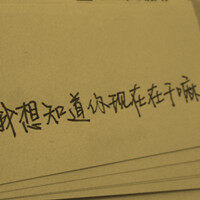 我想知道你现在在于嘛